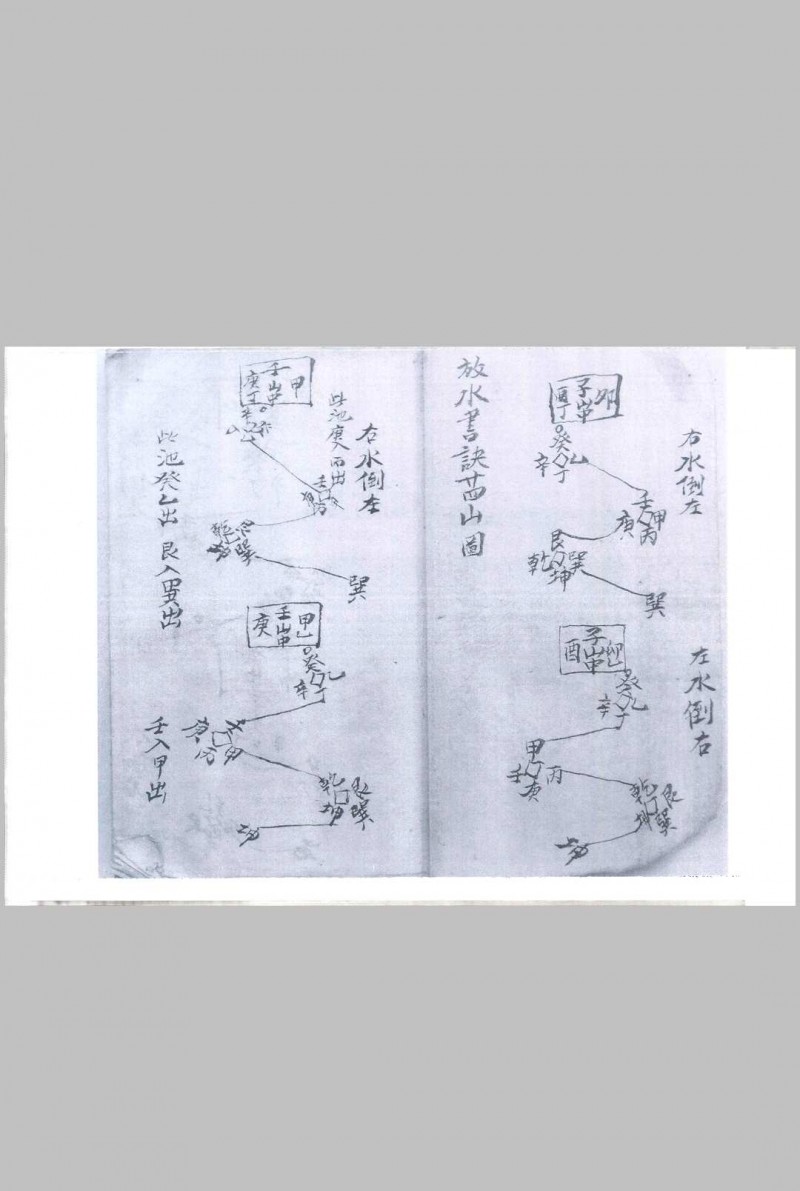 放水書訣廿四山圖
右水倒左
子山
卯
酉丁
癸
乙
辛
丁
壬
甲
庚
丙
艮
乾
巽
坤
巽
左水倒右
子山
卯
酉
癸
乙
辛
丁
甲
壬
丙
庚
乾
艮
坤
巽
右水倒左
子山
甲
庚
此池庚入丙出
壬
巽
巽
此池癸入乙出
艮入巽出
壬山
甲
庚
癸
乙
辛
丁
庚
乾
艮
坤
巽
壬入甲出